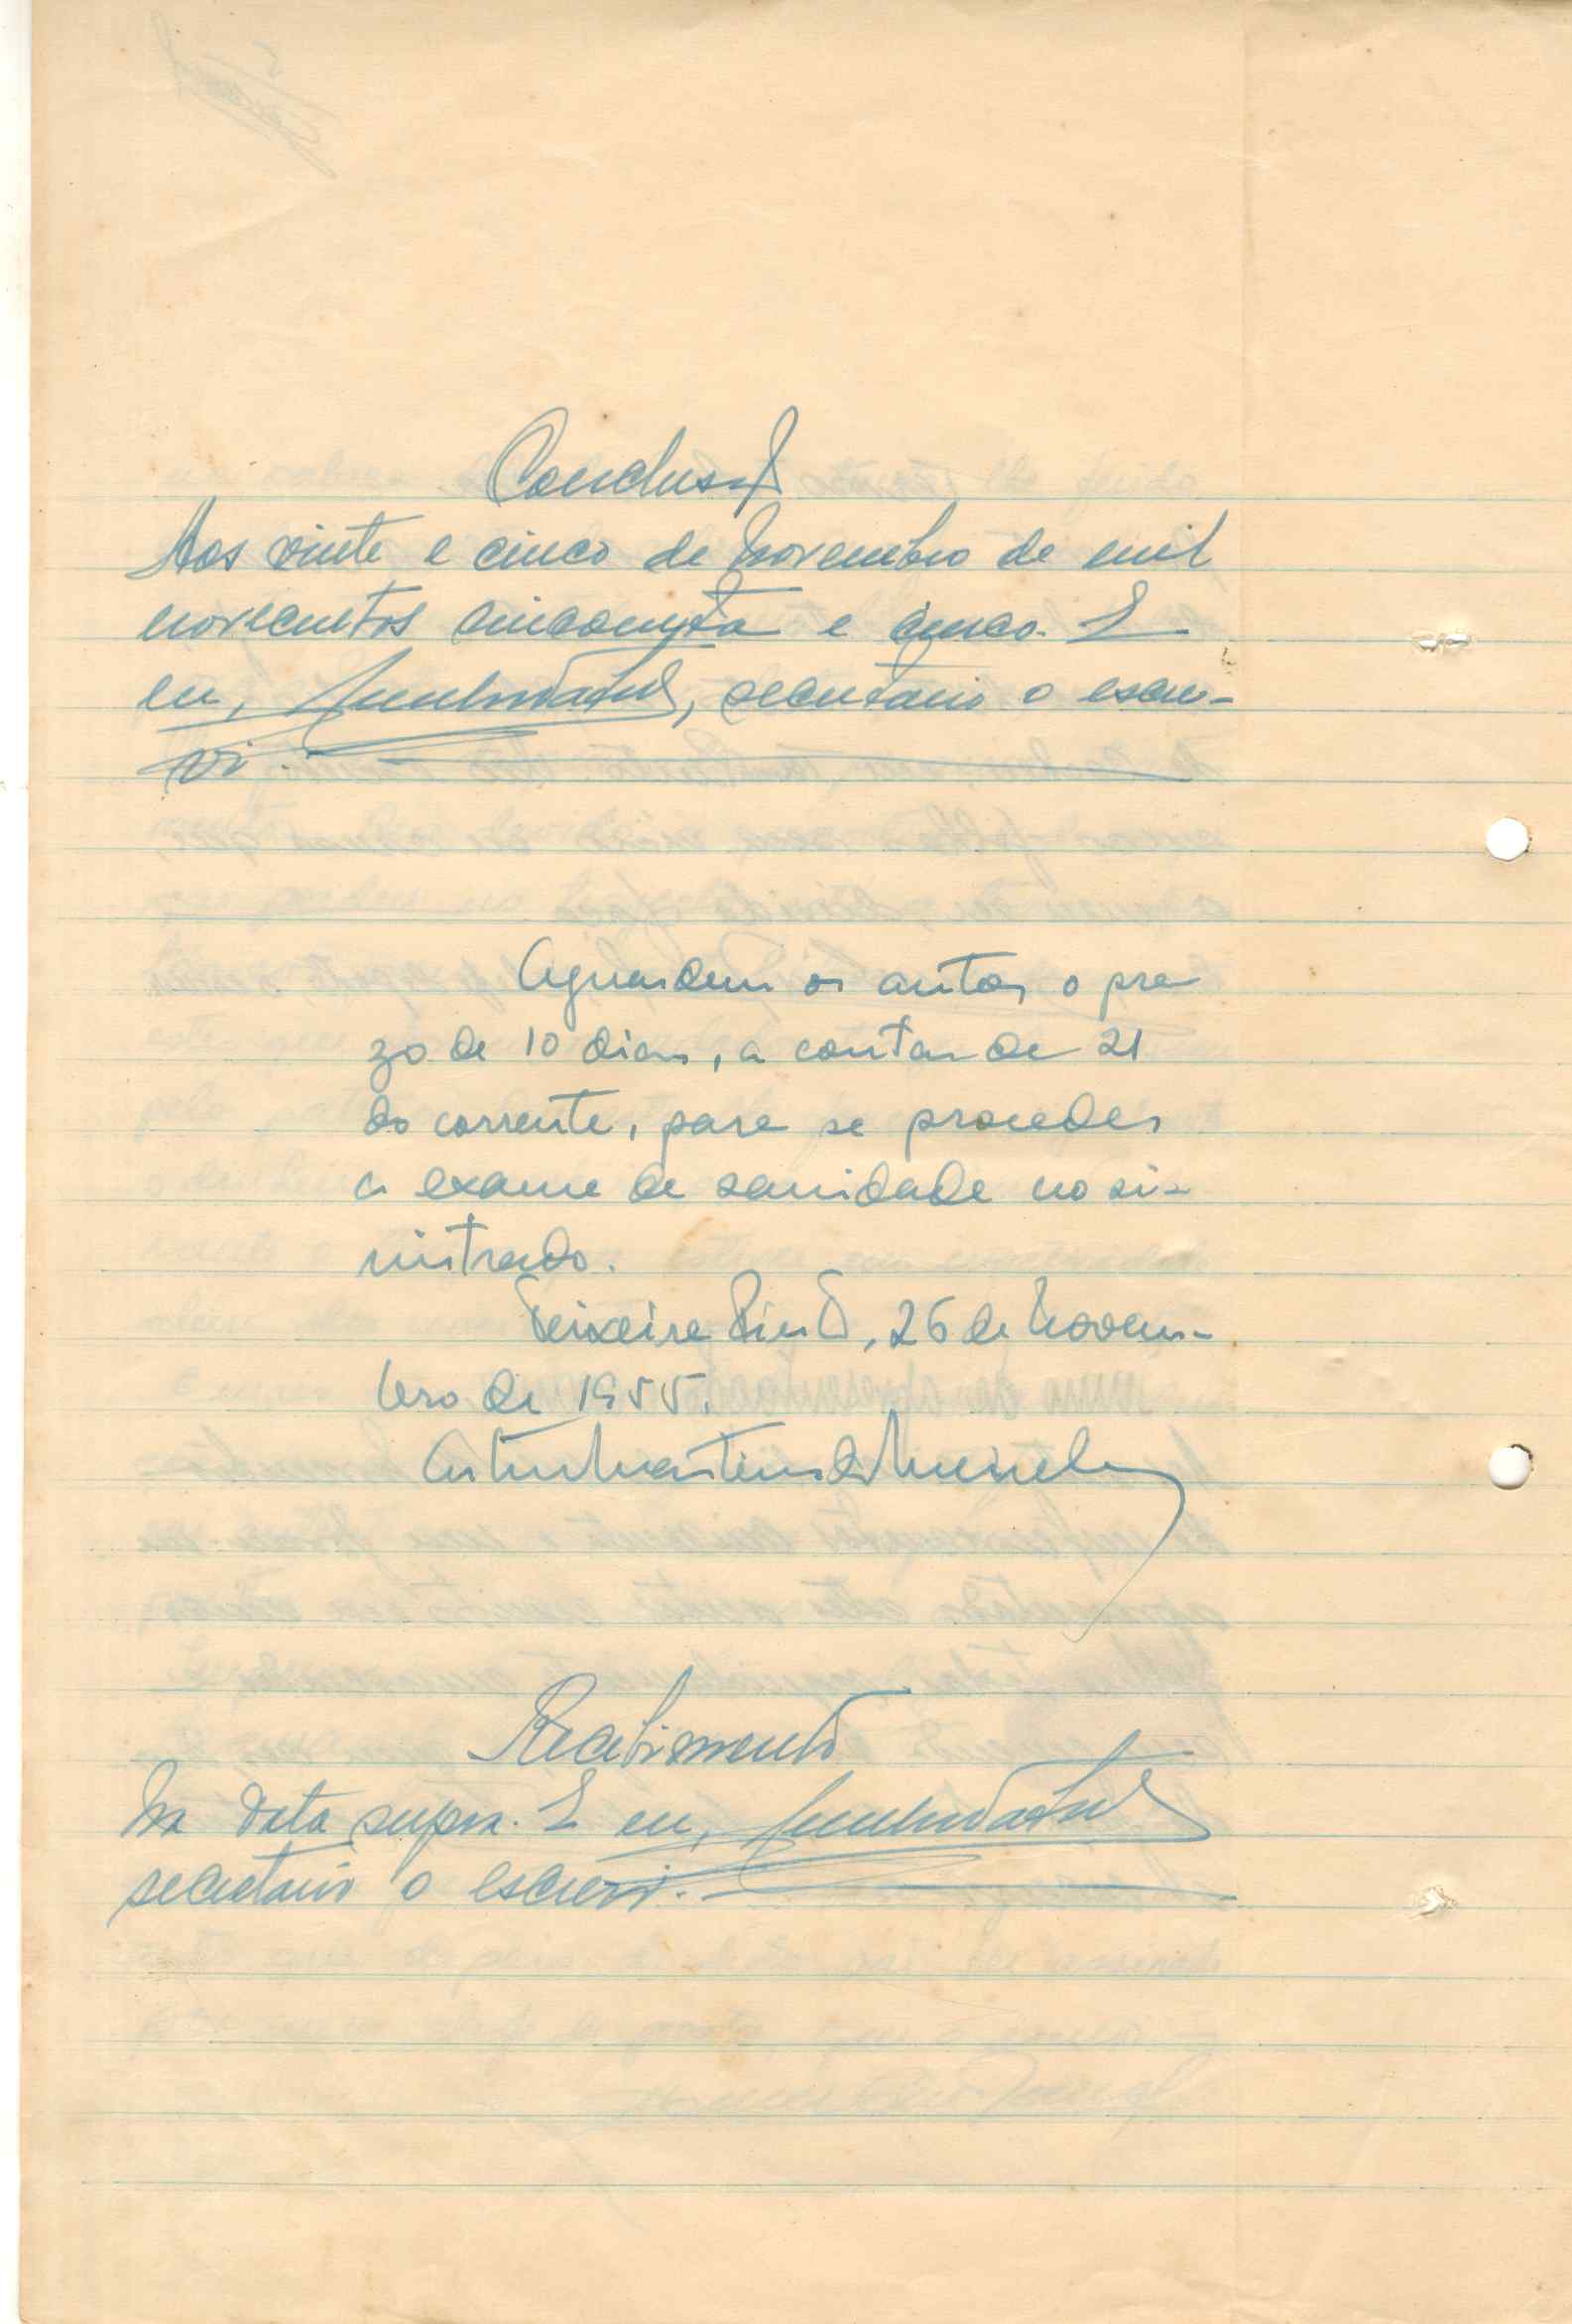 Conclusão
Aos vinte e cinco de Novembro de mil
novecentos cincoenta e cinco. E
eu, secretário o escre-
vi.
Aguardem os autos o pra
zo de 10 dias, a contar de 21
do corrente, para se proceder
a exame de sanidade no si-
nistrado.
Teixeira Pinto, 26 de Novem-
bro de 1955.
Artur Martins de Meireles
Recebimento
Na data supra. E eu,
secretário o escrevi.